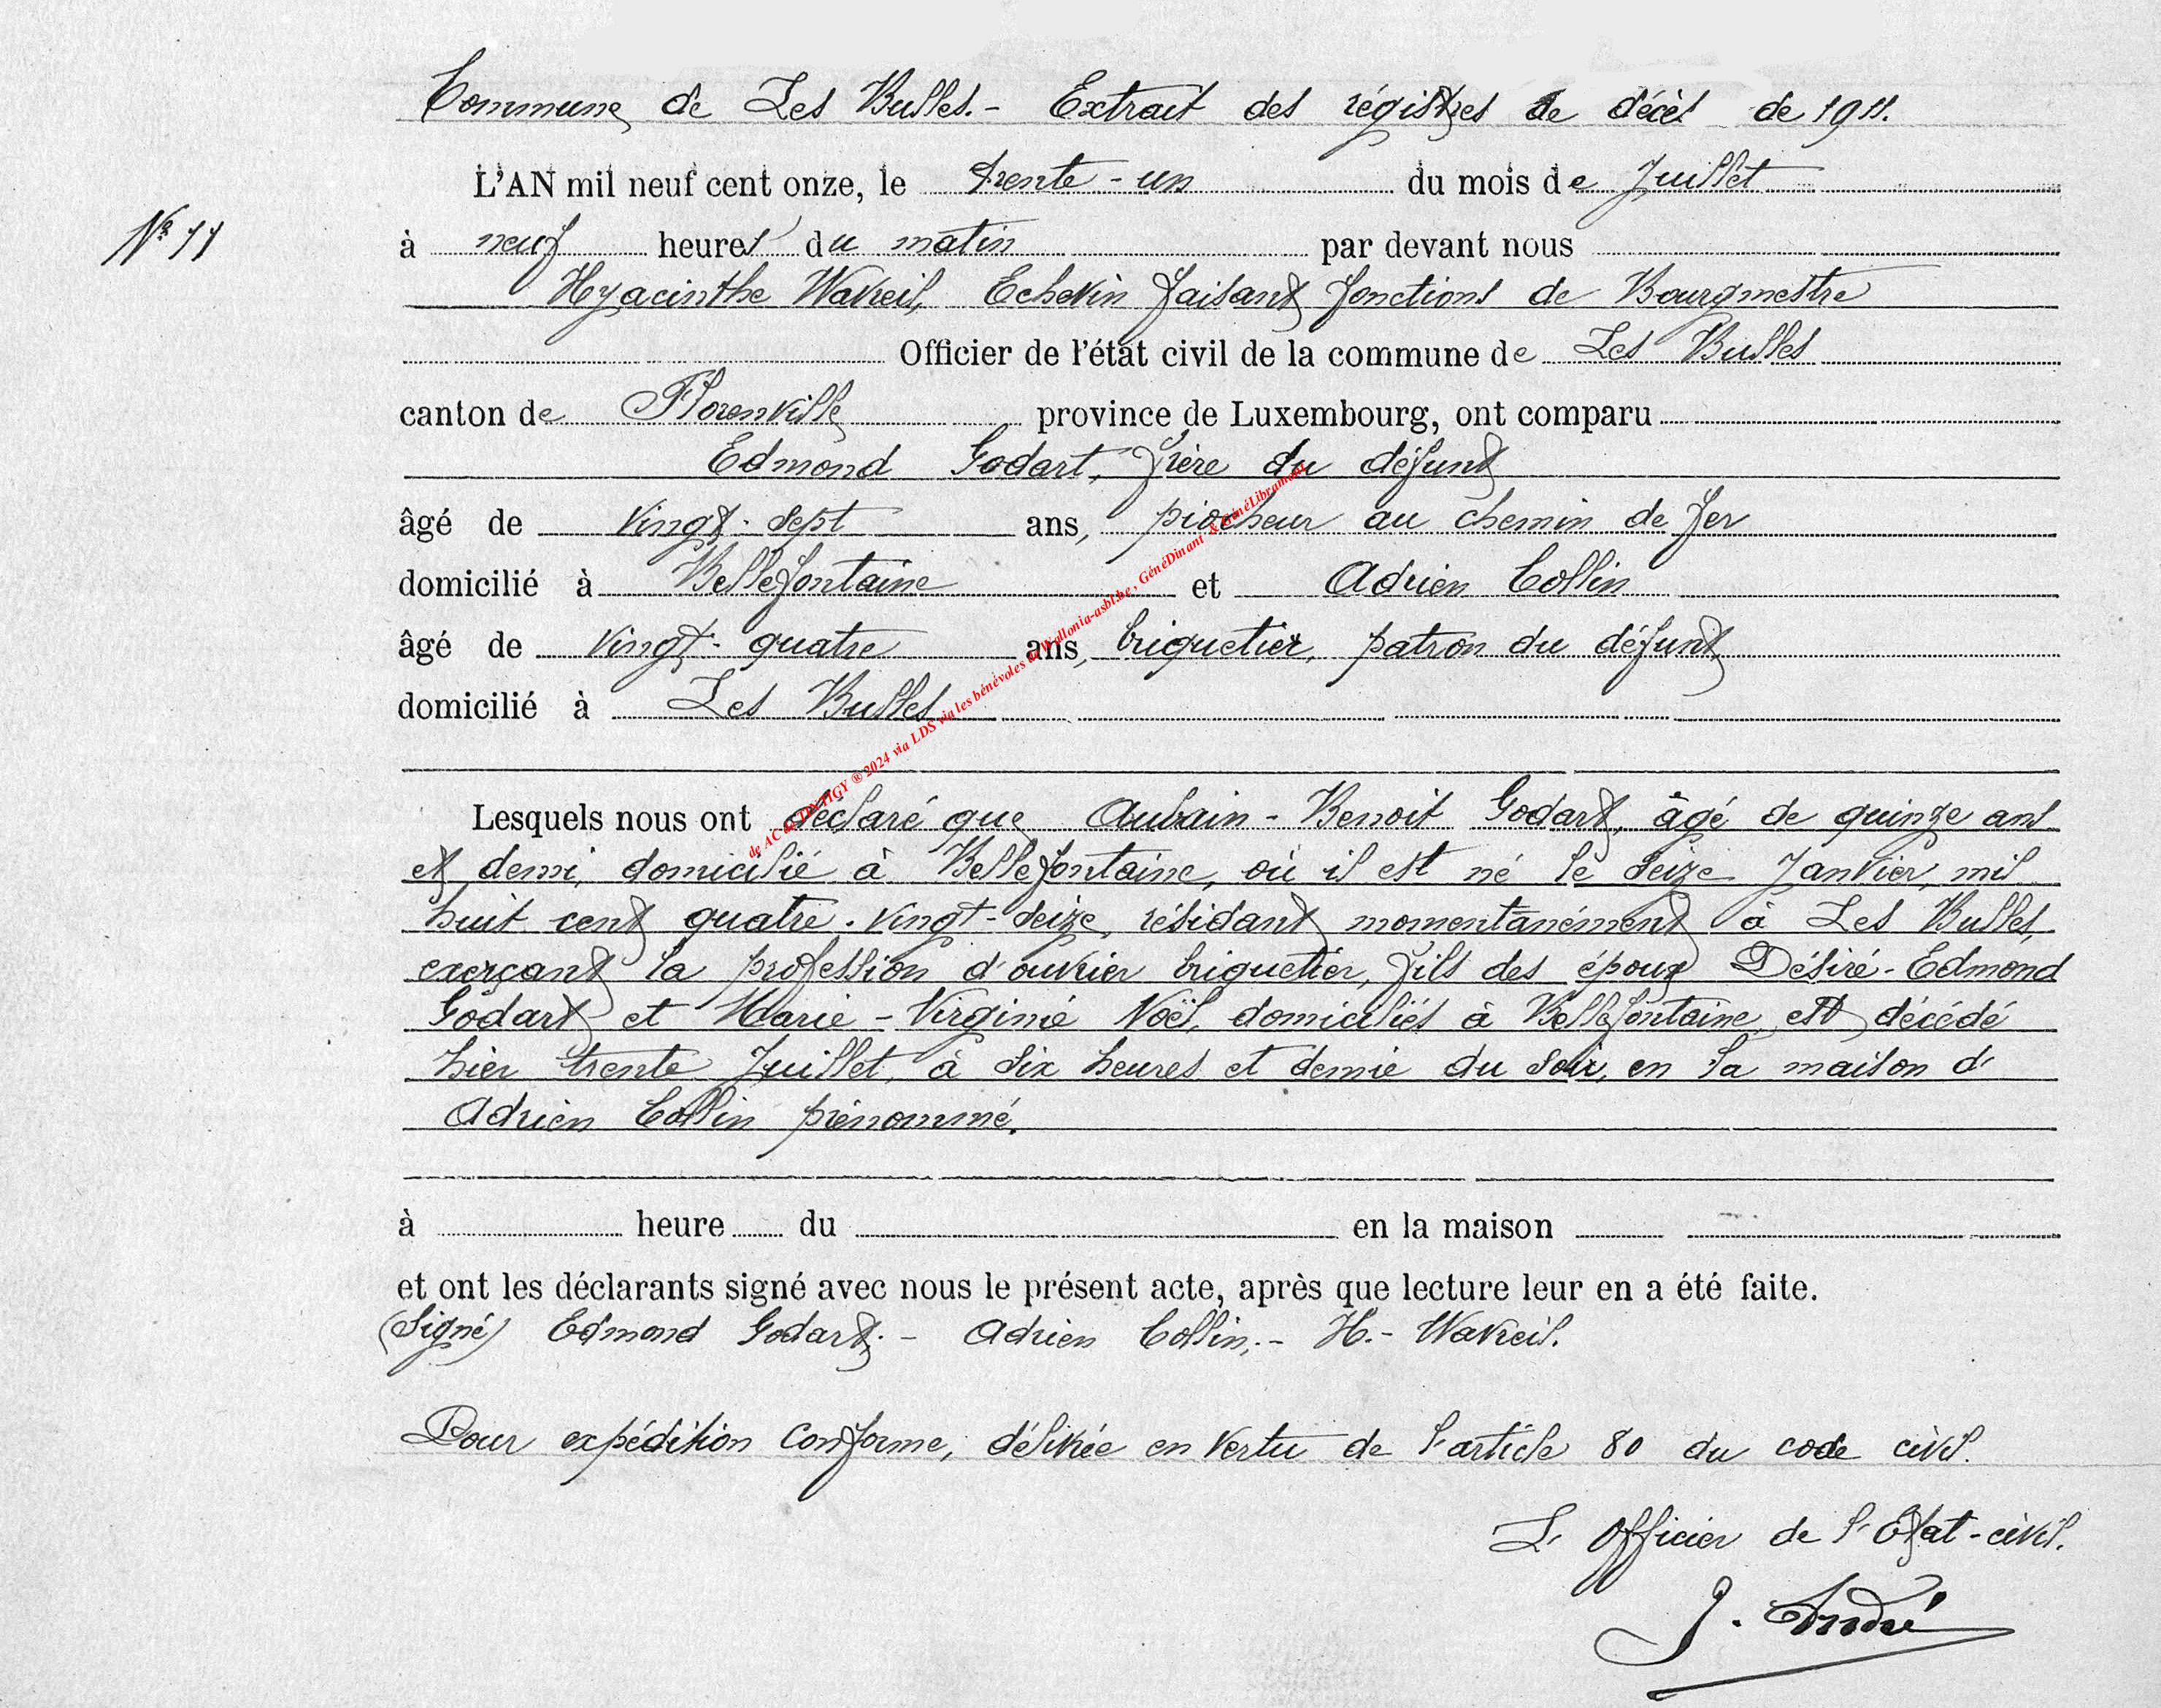 Commune de Les Bulles. - Extrait des régistres de décès de 1911.
L'AN mil neuf cent onze, le trente-un du mois de Juillet
N° 11
à neuf heures du matin par devant nous
Hyacinthe Watreil, Echevin faisant fonctions de Bourgmestre
Officier de l'état civil de la commune de Les Bulles
canton de Florenville province de Luxembourg, ont comparu
Edmond Godart, frère du défunt
âgé de vingt-sept ans, piocheur au chemin de fer
domicilié à Bellefontaine et Adrien Collin
âgé de vingt-quatre ans, briquetier, patron du défunt
domicilié à Les Bulles
Lesquels nous ont déclaré que Aubain-Benoit Godart, âgé de quinze ans
et demi, domicilié à Bellefontaine, où il est né le seize Janvier, mil
huit cent quatre-vingt-seize, résidant momentanément à Les Bulles,
exerçant la profession d'ouvrier briquetier, fils des époux Désiré-Edmond
Godart et Marie-Virginie Noël, domiciliés à Bellefontaine, est décédé
hier trente Juillet, à six heures et demie du soir, en la maison d'
Adrien Collin prénommé.
à heure du en la maison
et ont les déclarants signé avec nous le présent acte, après que lecture leur en a été faite.
(Signé) Edmond Godart. - Adrien Collin. - H. - Watreil.
Pour expédition conforme, délivrée en vertu de l'article 80 du code civil.
L'Officier de l'Etat-civil.
J. André
de AC de TINTIGY ® 2024 via LDS via les bénévoles de Wallonia-asbl.be, GénéDinant & GénéLibramont